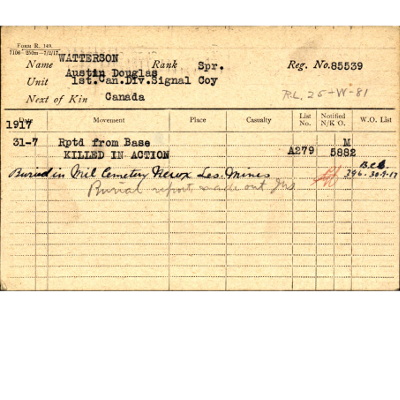 Form R. 149.
WATTERSON
Name Rank Spr. Reg. No. 85539
Austin Douglas
Unit 1st.Can.Div.Signal Coy
Next of Kin Canada R.L. 25-W-81
1917 Movement Place Casualty List No. Notified N/K O. W.O. List
31-7 Rptd from Base M
KILLED IN ACTION A279 5882
Buried in Mil Cemetery Noeux Les Mines 396-30-9-17
Burial report made out